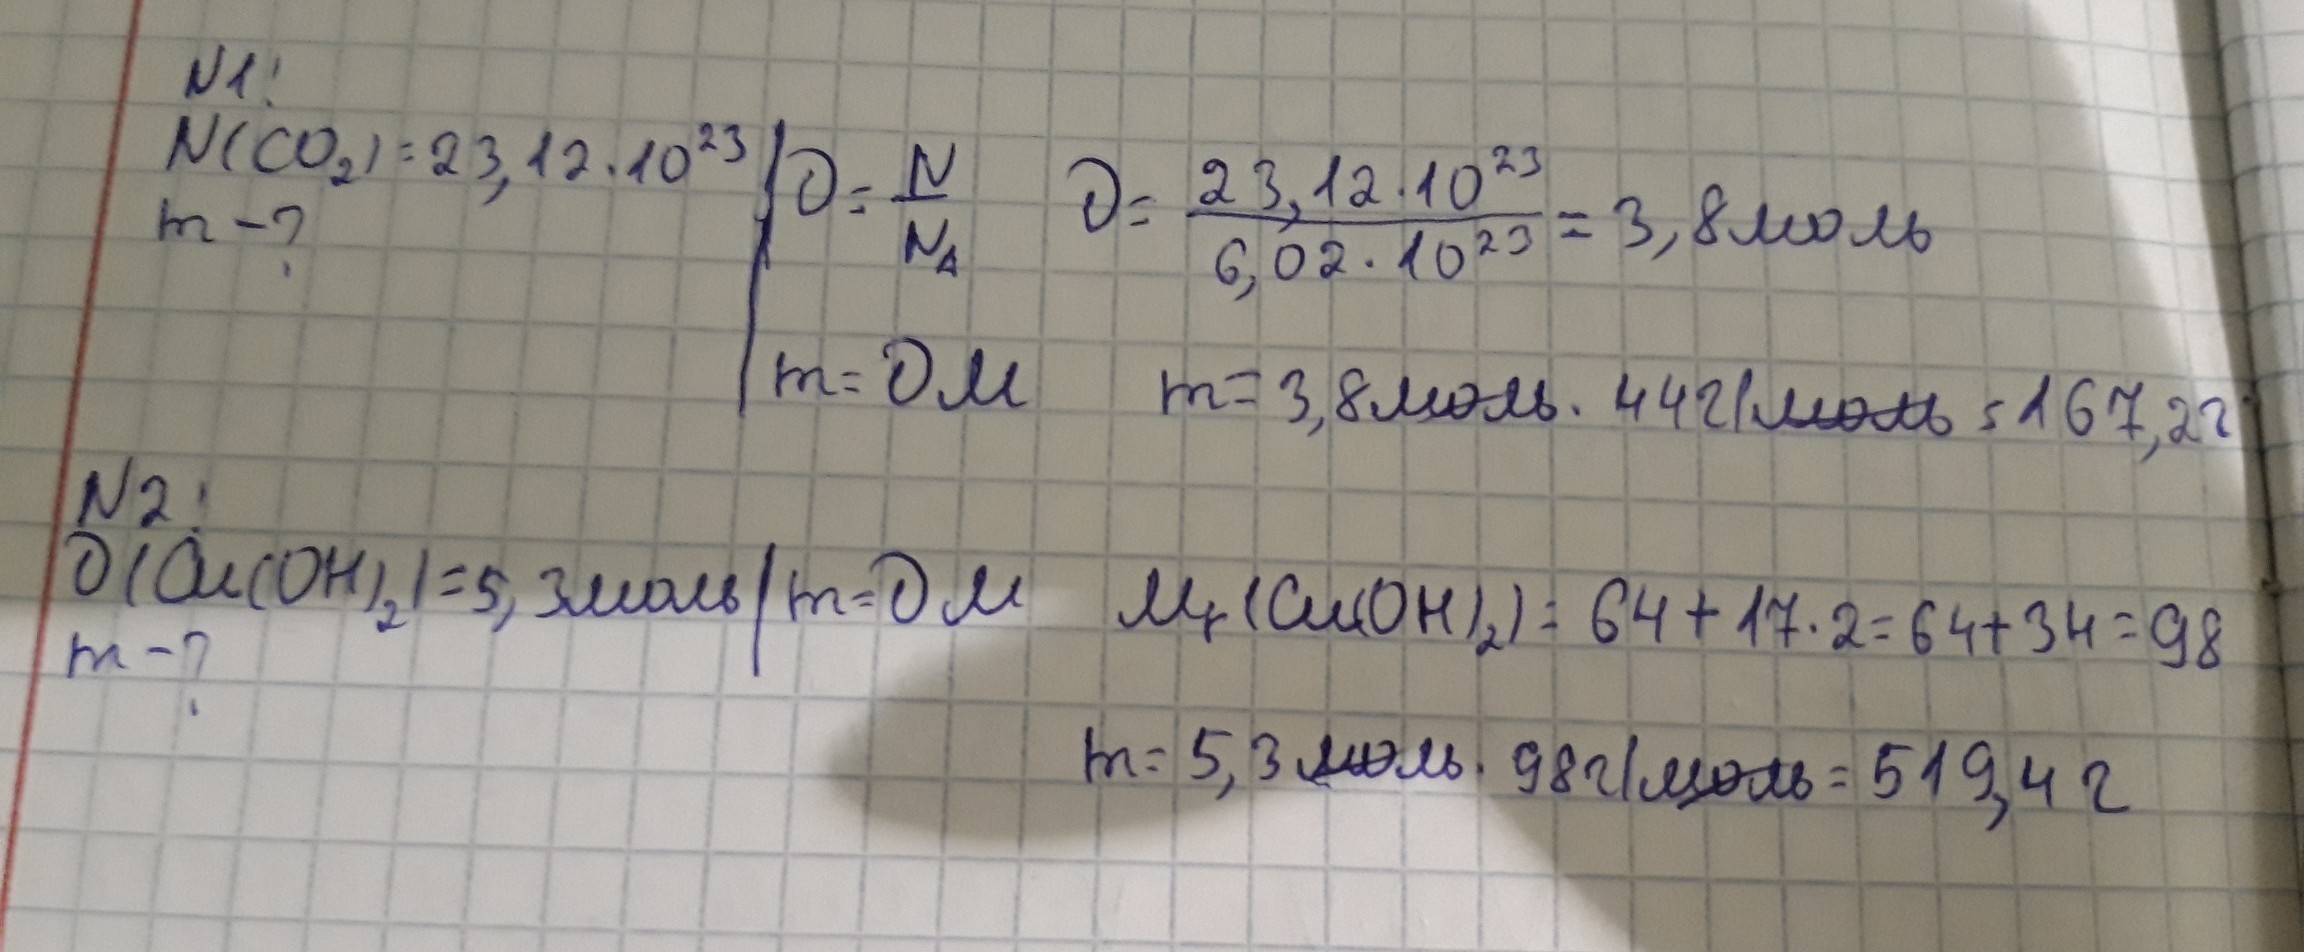 N1:
N(CO₂) = 23,12·10²³ | ν = N/N_A ν = 23,12·10²³ / 6,02·10²³ = 3,8 моль
m - ?
m = νM m = 3,8 моль · 44 г/моль = 167,2 г
N2:
ν(Cu(OH)₂) = 5,3 моль | m = νM Mr(Cu(OH)₂) = 64 + 17·2 = 64 + 34 = 98
m - ?
m = 5,3 моль · 98 г/моль = 519,4 г